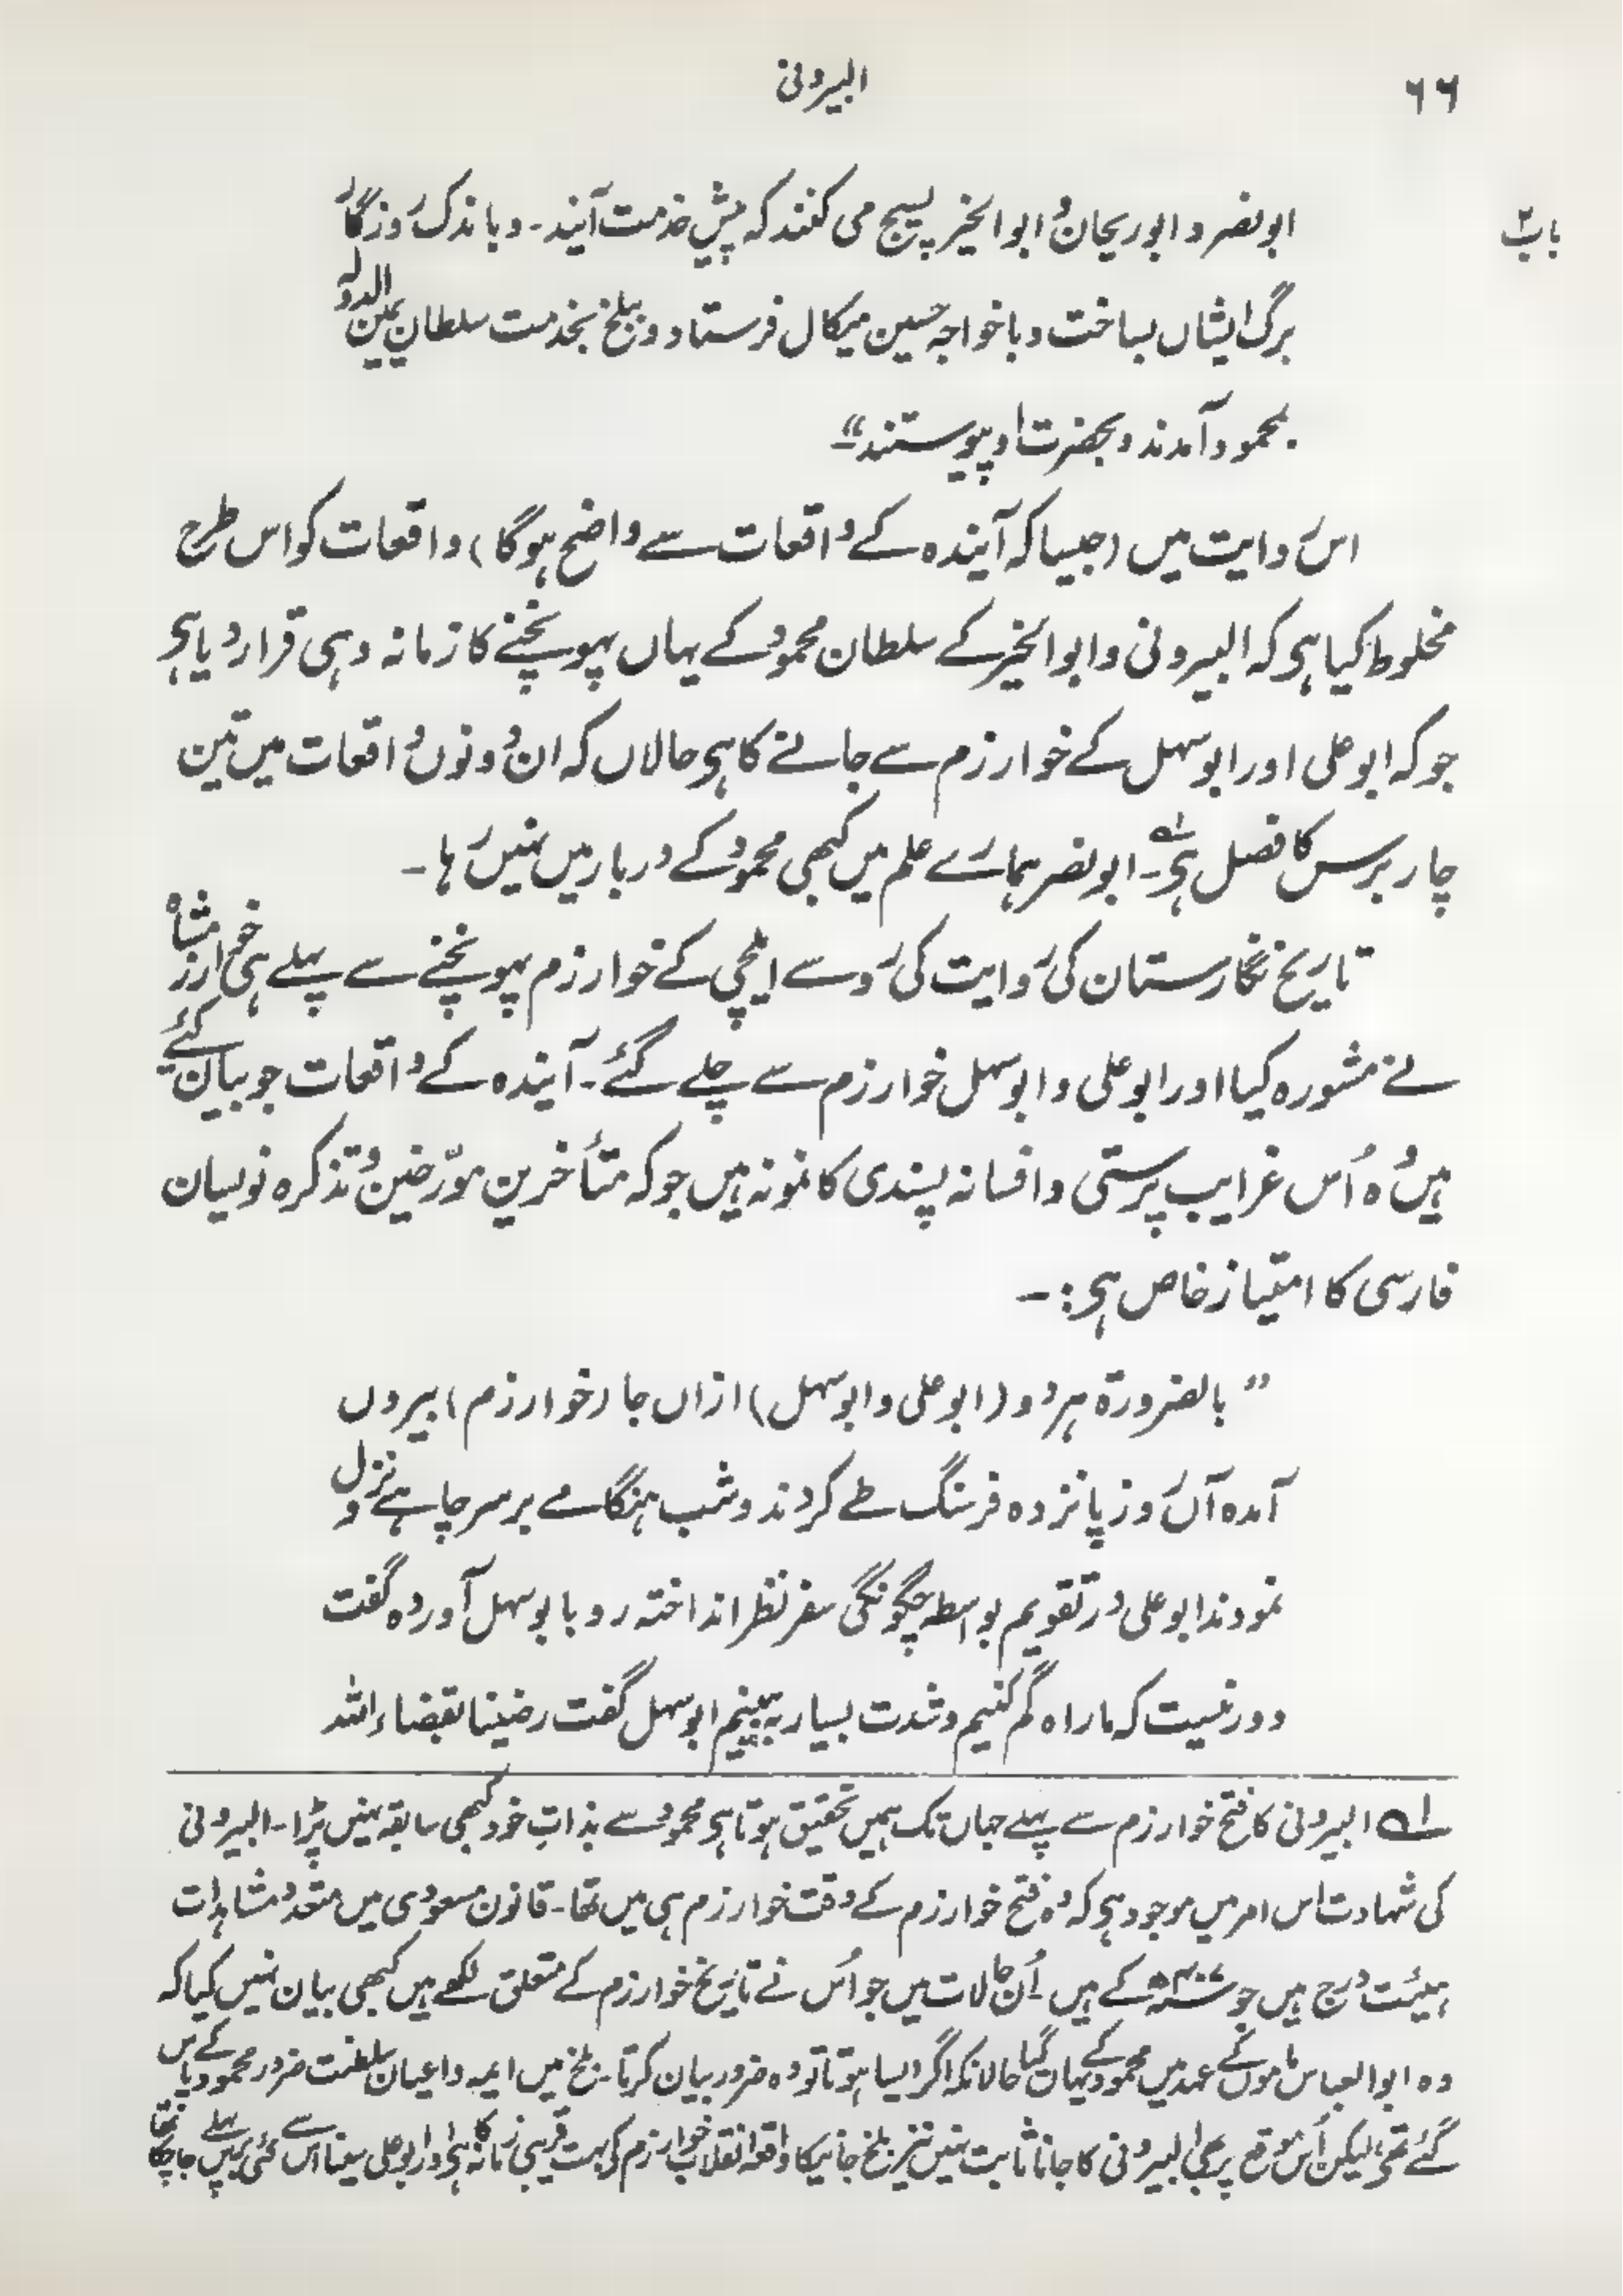 ۶۶
البیرونی
باب۲
ابونصر و ابوریحان و ابوالخیر پسیچ می کنند کہ پیش خدمت آیند۔ و باندک روزگار
برگ ایشاں بساخت و باخواجہ حسین میکال فرستاد و ببلخ بخدمت سلطان یمین الدولہ
محمود آمدند و بحضرت او پیوستند“۔
اس روایت میں (جیسا کہ آیندہ کے واقعات سے واضح ہوگا) واقعات کو اس طرح
مخلوط کیا ہی کہ البیرونی و ابوالخیر کے سلطان محمود کے یہاں پہونچنے کا زمانہ وہی قرار دیا ہی
جو کہ ابو علی اور ابو سہل کے خوارزم سے جانے کا ہی حالاں کہ ان دونوں واقعات میں تین
چار برس کا فصل ہی۔ ۱؎ ابو نصر ہمارے علم میں کبھی محمود کے دربار میں نہیں رہا۔
تاریخ نگارستان کی روایت کی رو سے ایلچی کے خوارزم پہونچنے سے پہلے ہی خوارزم شاہ
نے مشورہ کیا اور ابو علی و ابو سہل خوارزم سے چلے گئے۔ آیندہ کے واقعات جو بیان کئے گئے
ہیں وہ اُس غرایب پرستی و افسانہ پسندی کا نمونہ ہیں جو کہ متأخرین مورّخین و تذکرہ نویسان
فارسی کا امتیاز خاص ہی:۔
” بالضرورة ہر دو (ابو علی و ابو سہل) ازاں جا (خوارزم) بیروں
آمدہ آں روز پانزدہ فرسنگ طے کردند و شب ہنگامے بر سر چاہے نزول
نمودند ابو علی در تقویم بواسطہ چگونگی سفر نظر انداختہ رو با بو سہل آوردہ گفت
دور نیست کہ ما راہ گم کنیم و شدت بسیار بہ بینیم ابو سہل گفت رضینا بقضاء اللہ
۱؎ البیرونی کا فتح خوارزم سے پہلے جہاں تک ہمیں تحقیق ہوتا ہی محمود سے بذات خود کبھی سابقہ نہیں پڑا۔ البیرونی
کی شہادت اس امر میں موجود ہی کہ وہ فتح خوارزم کے وقت خوارزم ہی میں تھا۔ قانون مسعودی میں متعدد مشاہدات
ہیئت درج ہیں جو ۴۰۷ھ کے ہیں۔ اُن حالات میں جو اُس نے تاریخ خوارزم کے متعلق لکھے ہیں کبھی بیان نہیں کیا کہ
وہ ابو العباس مامون کے عہد میں محمود کے یہاں گیا حالانکہ اگر ایسا ہوتا تو وہ ضرور بیان کرتا۔ بلخ میں ایمہ و اعیان سلطنت ضرور محمود کے پاس
گئے تھے لیکن اُس موقع پر بھی البیرونی کا جانا ثابت نہیں نیز بلخ جانیکا واقعہ انقلاب خوارزم کی بہت قریبی زمانہ کا ہی اور ابو علی سینا اس سے کئی برس پہلے جا چکا تھا